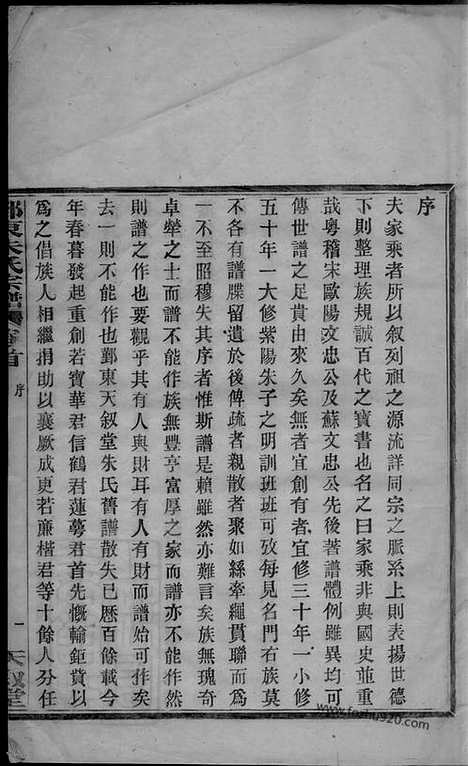 序
夫家乘者所以叙列祖之源流詳同宗之脈系上則表揚世德
下則整理族規誠百代之寶書也名之曰家乘非與國史並重
哉粵稽宋歐陽文忠公及蘇文忠公先後著譜體例雖異均可
傳世譜之足貴由來久矣無者宜創有者宜修三十年一小修
五十年一大修紫陽朱子之明訓班班可攷每見名門右族莫
不各有譜牒留遺於後俾疏者親散者聚如絲牽繩貫聯而為
一不至昭穆失其序者惟斯譜是賴雖然亦難言矣族無瑰奇
卓犖之士而譜不能作族無豐亨富厚之家而譜亦不能作然
則譜之作也要觀乎其有人與財耳有人有財而譜始可作矣
去一則不能作也鄞東天叙堂朱氏舊譜散失已歷百餘載今
年春暮發起重創若寶華君信鶴君蓮蕚君首先慨輸鉅貲以
為之倡族人相繼捐助以襄厥成更若廉楷君等十餘人分任
鄞東朱氏宗譜 卷首 序 一 天叙堂
www.fozhu920.com